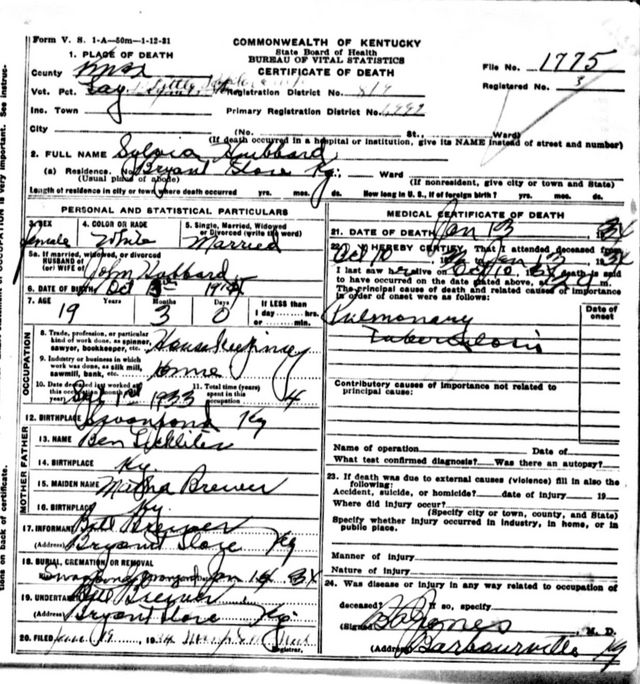 Form V. S. 1-A—50m—1-12-31
COMMONWEALTH OF KENTUCKY
State Board of Health
BUREAU OF VITAL STATISTICS
CERTIFICATE OF DEATH
File No. 1775
Registered No. 3
1. PLACE OF DEATH
County Knox
Vot. Pct.
Registration District No.
Inc. Town
Primary Registration District No.
City
(No. St., Ward)
(If death occurred in a hospital or institution, give its NAME instead of street and number)
2. FULL NAME Sylvia Hubbard
(a) Residence. No. Bryant Store Ky. Ward
(Usual place of abode)
(If nonresident, give city or town and State)
Length of residence in city or town where death occurred yrs. mos. ds. How long in U. S., if of foreign birth? yrs. mos. ds.
PERSONAL AND STATISTICAL PARTICULARS
3. SEX
Female
4. COLOR OR RACE
White
5. Single, Married, Widowed or Divorced (write the word)
Married
5a. If married, widowed, or divorced
HUSBAND of
(or) WIFE of John Hubbard
6. DATE OF BIRTH Oct
7. AGE Years Months Days If LESS than
19 3 0 1 day hrs. or min.
OCCUPATION
8. Trade, profession, or particular kind of work done, as spinner, sawyer, bookkeeper, etc. Housekeeping
9. Industry or business in which work was done, as silk mill, sawmill, bank, etc. Home
10. Date deceased last worked at this occupation (month and year) 1st 1933
11. Total time (years) spent in this occupation 4
12. BIRTHPLACE Ky
FATHER
13. NAME Ben
14. BIRTHPLACE Ky.
MOTHER
15. MAIDEN NAME Brewer
16. BIRTHPLACE Ky
17. INFORMANT Bill Brewer
(Address) Bryant Store Ky
18. BURIAL, CREMATION OR REMOVAL
Jan 14 34
19. UNDERTAKER Bill Brewer
(Address) Bryant Store Ky.
20. FILED 1934
Registrar.
MEDICAL CERTIFICATE OF DEATH
21. DATE OF DEATH Jan 13 1934
22. I HEREBY CERTIFY, That I attended deceased from
Oct 10 Jan 13 1934
I last saw her alive on Oct 10, death is said
to have occurred on the date stated above, at m.
The principal cause of death and related causes of importance
in order of onset were as follows:
Date of onset
Pulmonary
Tuberculosis
Contributory causes of importance not related to
principal cause:
Name of operation Date of
What test confirmed diagnosis? Was there an autopsy?
23. If death was due to external causes (violence) fill in also the
following:
Accident, suicide, or homicide? date of injury 19
Where did injury occur?
(Specify city or town, county, and State)
Specify whether injury occurred in industry, in home, or in
public place.
Manner of injury
Nature of injury
24. Was disease or injury in any way related to occupation of
deceased? If so, specify
(Signed) Jones, M. D.
(Address) Barbourville Ky